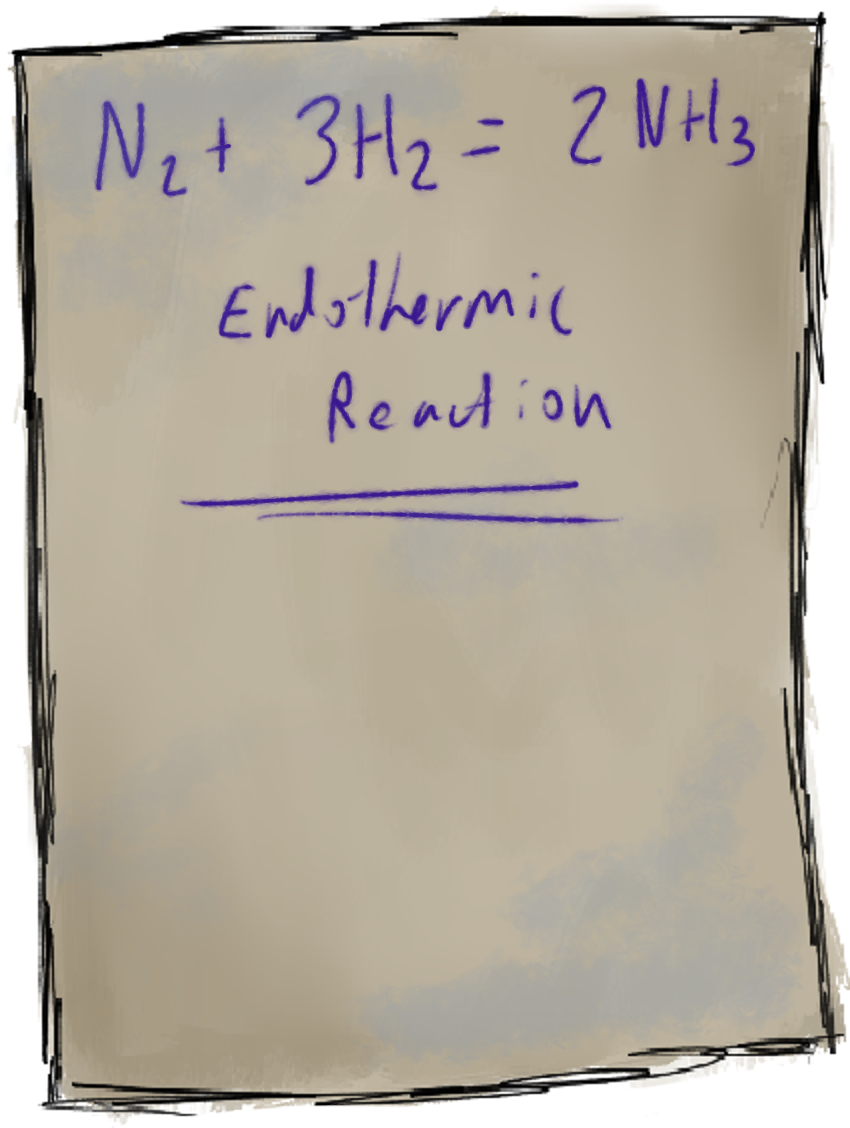 N₂ + 3H₂ = 2NH₃
Endothermic
Reaction